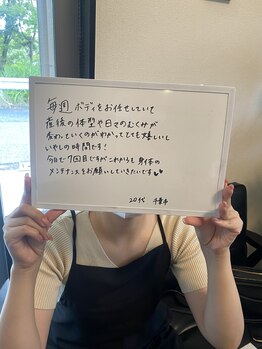 毎週 ボディをお任せしていて
産後の体型や日々のむくみが
変わっていくのがわかってとても嬉しいし
いやしの時間です！
今日で7回目ですがこれからも身体の
メンテナンスをお願いしていきたいです♥
20代 千葉市